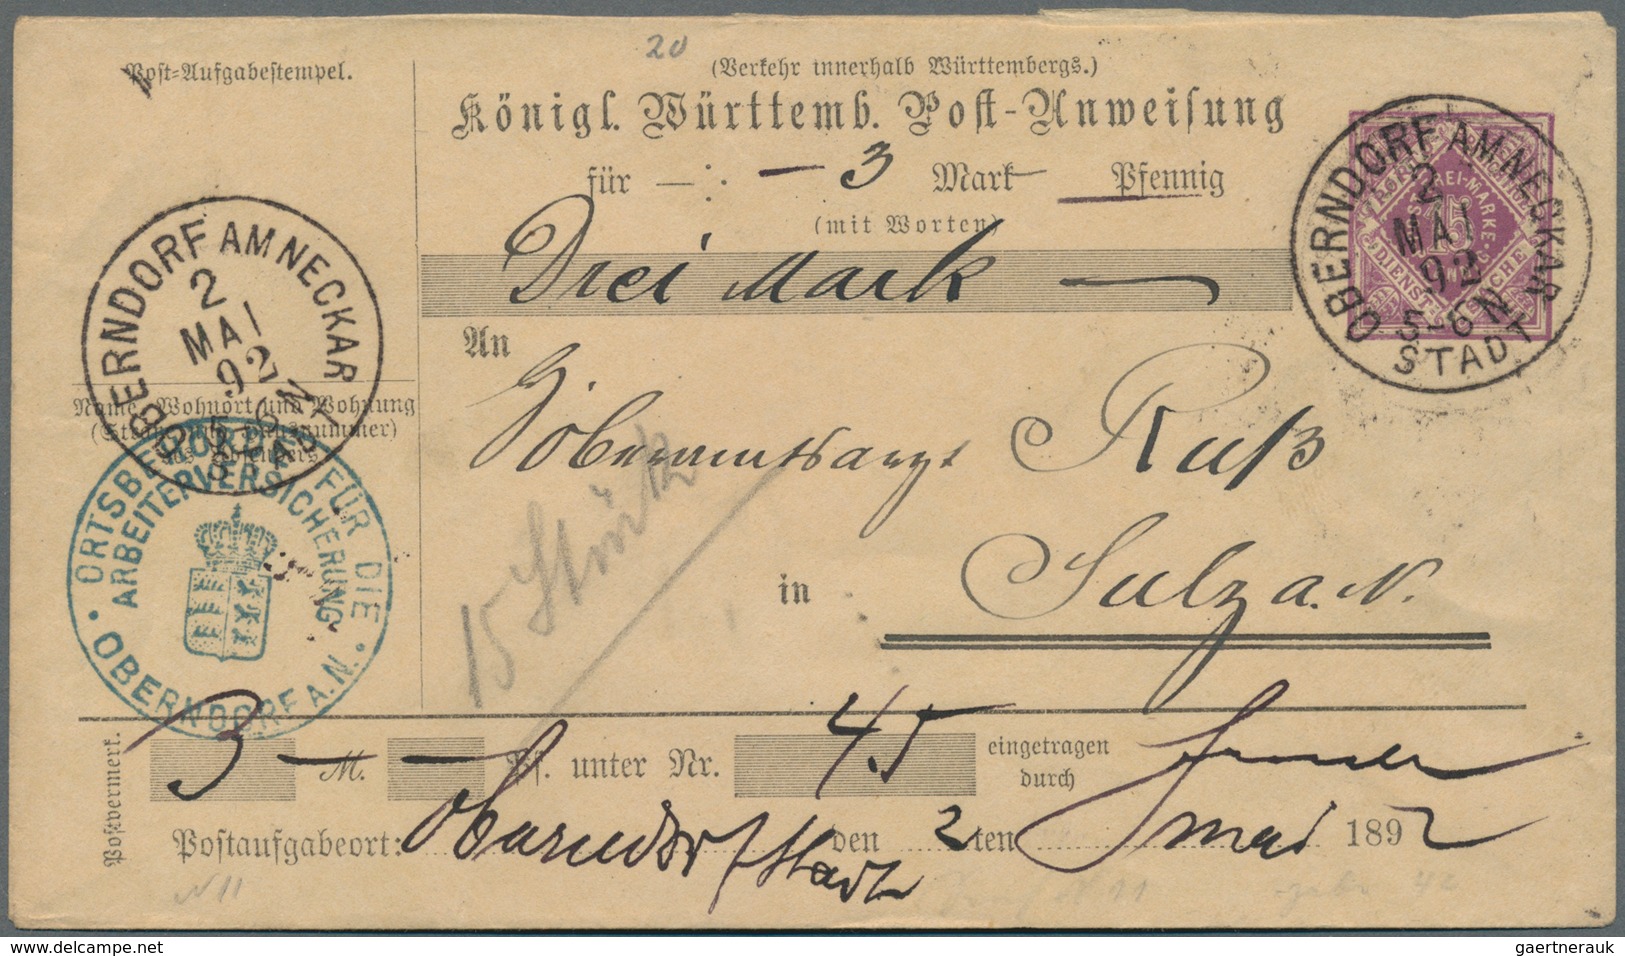 20
Post-Aufgabestempel.
(Verkehr innerhalb Württembergs.)
Königl. Württemb. Post-Anweisung
für — : — 3 Mark Pfennig
(mit Worten)
Drei Mark
OBERNDORF AM NECKAR
2
MAI
92
5-6 N
STADT
DREI-MARK
15
DIENST
OBERNDORF AM NECKAR
2
MAI
92
5-6 N
Name, Wohnort und Wohnung
des Absenders
ORTSBEHÖRDE FÜR DIE
ARBEITERVERSICHERUNG
OBERNDORF A.N.
An
Oberamtsarzt Ruß
15 Stück
in Sulz a. N.
Postvermerk.
3 — M. — Pf. unter Nr. 45 eingetragen durch
Postaufgabeort: Oberndorf Stadt den 2ten Mai 1892
N 11
gaertnerauk